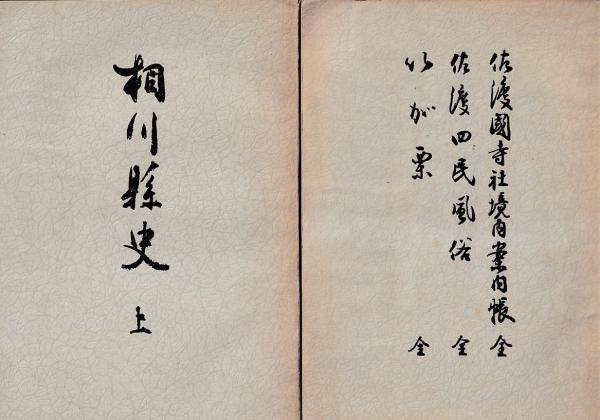 佐渡國寺社境内案内帳 全
佐渡四民風俗 全
いが ж栗 全
相川縣史 上